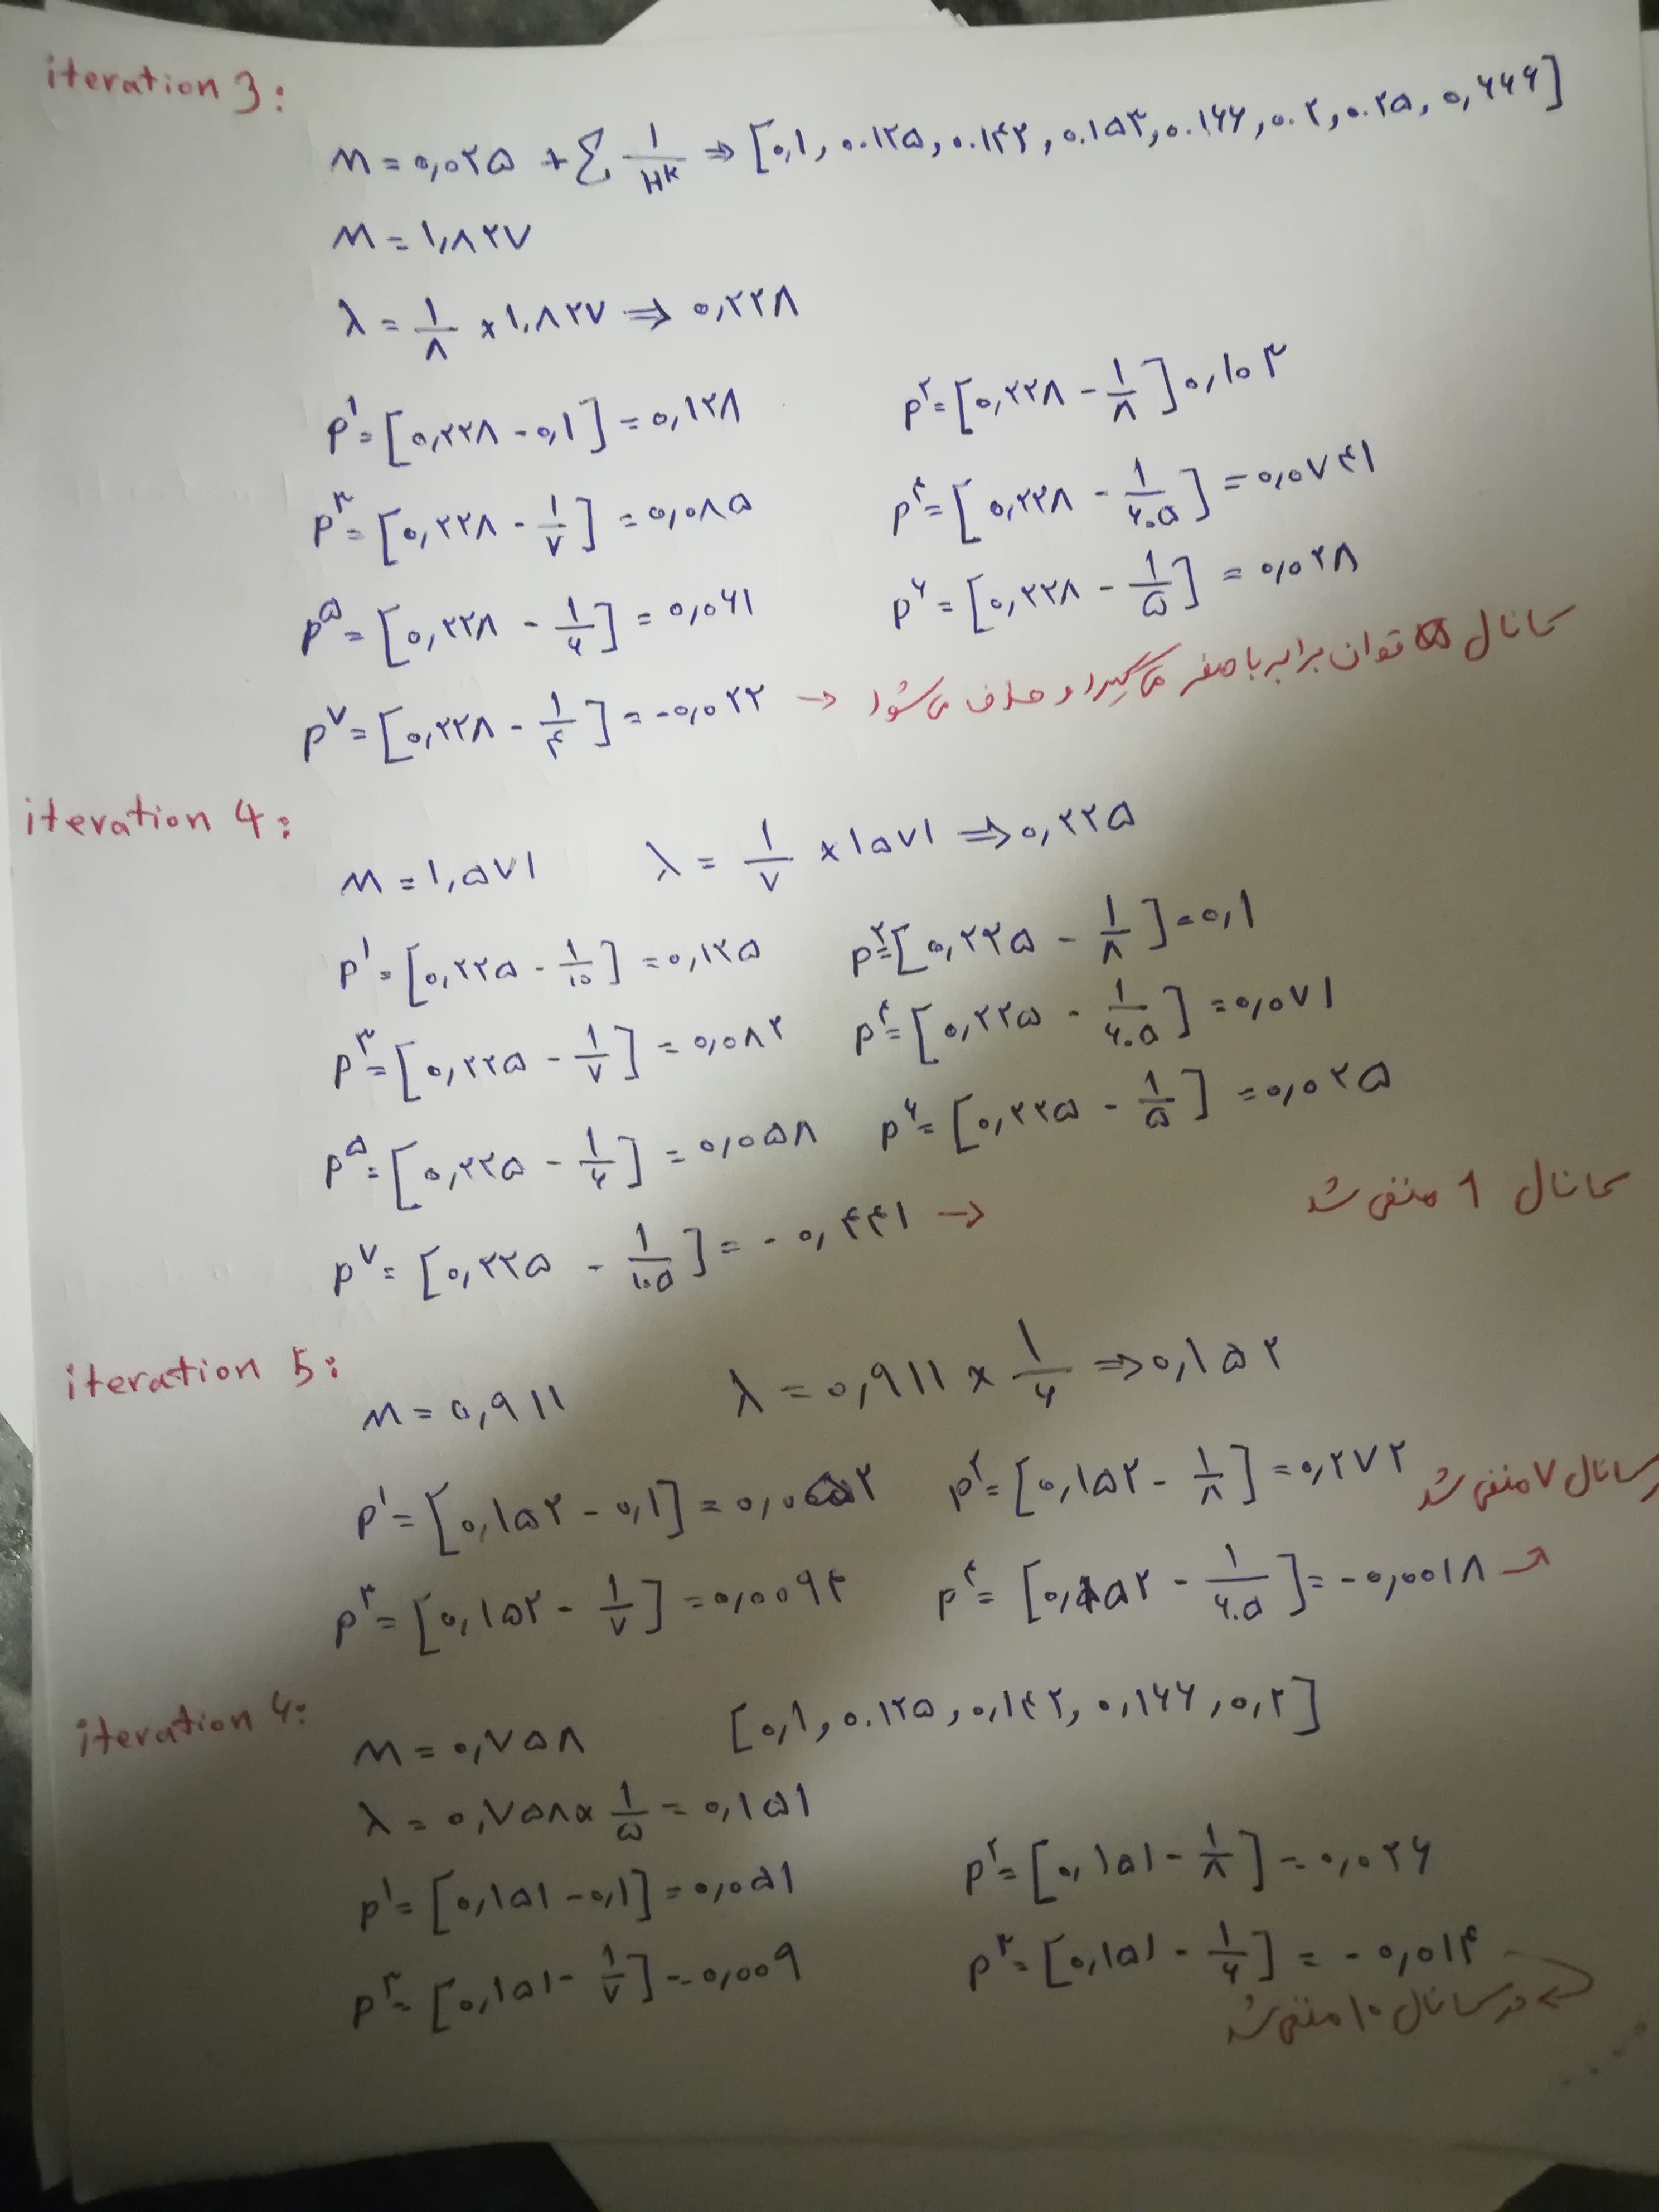 iteration 3:
M = ۰,۰۲۵ + Σ 1/Hᴷ ⇒ [۰,۱, ۰.۱۲۵, ۰.۱۴۲, ۰.۱۵۳, ۰.۱۶۶, ۰.۲, ۰.۲۵, ۰,۶۶۶]
M = ۱,۸۲۷
λ = ۱/۸ × ۱,۸۲۷ ⇒ ۰,۲۲۸
P¹ = [۰,۲۲۸ - ۰,۱] = ۰,۱۲۸ P² = [۰,۲۲۸ - ۱/۸] ۰,۱۰۳
P³ = [۰,۲۲۸ - ۱/۷] = ۰,۰۸۵ P⁴ = [۰,۲۲۸ - ۱/۶.۵] = ۰,۰۷۴۱
P⁵ = [۰,۲۲۸ - ۱/۶] = ۰,۰۶۱ P⁶ = [۰,۲۲۸ - ۱/۵] = ۰,۰۲۸
P⁷ = [۰,۲۲۸ - ۱/۴] = -۰,۰۲۲ → کانال توان برابر با صفر می‌گیرد و حذف می‌شود
iteration 4:
M = ۱,۵۷۱ λ = ۱/۷ × ۱۵۷۱ ⇒ ۰,۲۲۵
P¹ = [۰,۲۲۵ - ۱/۱۰] = ۰,۱۲۵ P² = [۰,۲۲۵ - ۱/۸] = ۰,۱
P³ = [۰,۲۲۵ - ۱/۷] = ۰,۰۸۲ P⁴ = [۰,۲۲۵ - ۱/۶.۵] = ۰,۰۷۱
P⁵ = [۰,۲۲۵ - ۱/۶] = ۰,۰۵۸ P⁶ = [۰,۲۲۵ - ۱/۵] = ۰,۰۲۵
P⁷ = [۰,۲۲۵ - ۱/۱.۵] = -۰,۴۴۱ → کانال ۹ منفی شد
iteration 5:
M = ۰,۹۱۱ λ = ۰,۹۱۱ × ۱/۶ ⇒ ۰,۱۵۲
P¹ = [۰,۱۵۲ - ۰,۱] = ۰,۰۵۲ P² = [۰,۱۵۲ - ۱/۸] = ۰,۲۷۲ کانال ۷ منفی شد
P³ = [۰,۱۵۲ - ۱/۷] = ۰,۰۰۹۲ P⁴ = [۰,۱۵۲ - ۱/۶.۵] = -۰,۰۰۱۸
iteration ۶:
M = ۰,۷۵۸ [۰,۱, ۰.۱۲۵, ۰,۱۴۲, ۰,۱۶۶, ۰,۲]
λ = ۰,۷۵۸ × ۱/۵ = ۰,۱۵۱
P¹ = [۰,۱۵۱ - ۰,۱] = ۰,۰۵۱ P² = [۰,۱۵۱ - ۱/۸] = ۰,۰۲۶
P³ = [۰,۱۵۱ - ۱/۷] = ۰,۰۰۹ P³ = [۰,۱۵۱ - ۱/۶] = -۰,۰۱۴
در کانال ۱۰ منفی شد